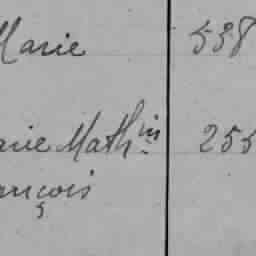 Marie 538
arie Math.in 255
ançois